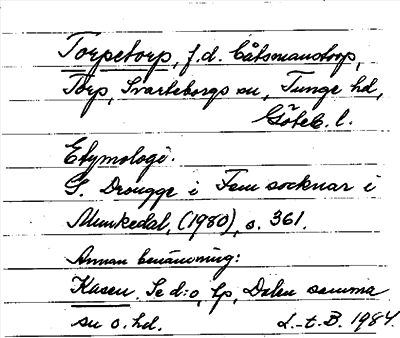 Torpetorp, f.d. Båtsmanstorp,
Torp, Svarteborgs sn, Tunge hd,
Göteb. l.
Etymologi.
G. Drougge i Fem socknar i
Munkedal, (1980), s. 361.
Annan benämning:
Kasen. Se d:o, lp, Dalen samma
sn o. hd. L.-t. B. 1984.